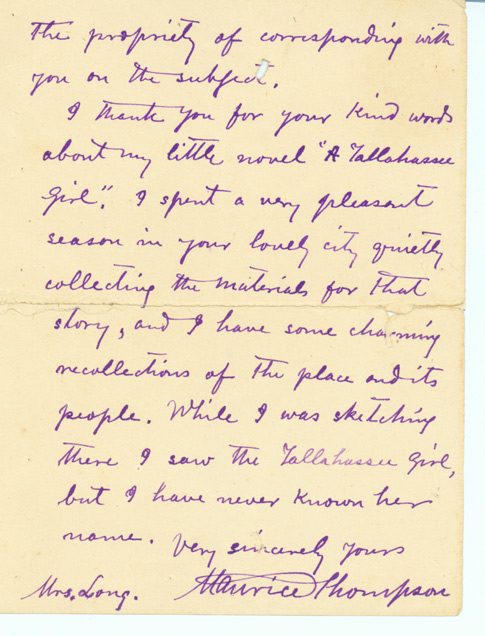 the propriety of corresponding with
you on the subject.
I thank you for your kind words
about my little novel "A Tallahassee
Girl". I spent a very pleasant
season in your lovely city quietly
collecting the materials for that
story, and I have some charming
recollections of the place and its
people. While I was sketching
there I saw the Tallahassee Girl,
but I have never known her
name. Very sincerely yours
Mrs. Long. Maurice Thompson